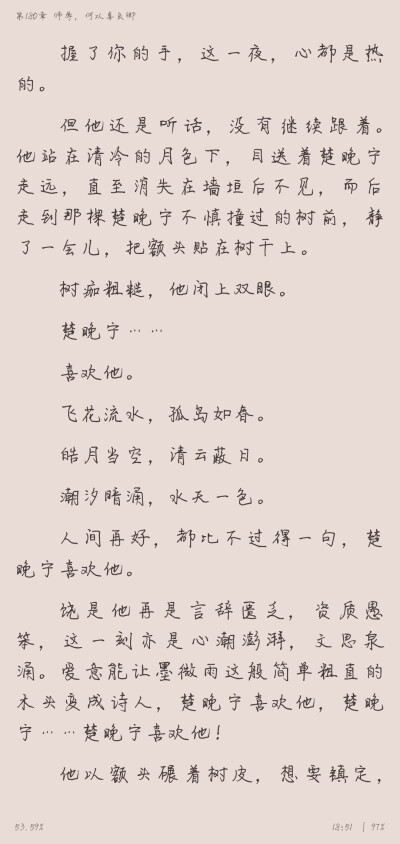 第180章 师尊，何以喜我卿
握了你的手，这一夜，心都是热
的。
但他还是听话，没有继续跟着。
他站在清冷的月色下，目送着楚晚宁
走远，直至消失在墙垣后不见，而后
走到那棵楚晚宁不慎撞过的树前，静
了一会儿，把额头贴在树干上。
树痂粗糙，他闭上双眼。
楚晚宁……
喜欢他。
飞花流水，孤岛如春。
皓月当空，清云蔽日。
潮汐暗涌，水天一色。
人间再好，都比不过得一句，楚
晚宁喜欢他。
饶是他再是言辞匮乏，资质愚
笨，这一刻亦是心潮澎湃，文思泉
涌。爱意能让墨微雨这般简单粗直的
木头变成诗人，楚晚宁喜欢他，楚晚
宁……楚晚宁喜欢他！
他以额头碾着树皮，想要镇定，
53.59%
18:51 | 97%